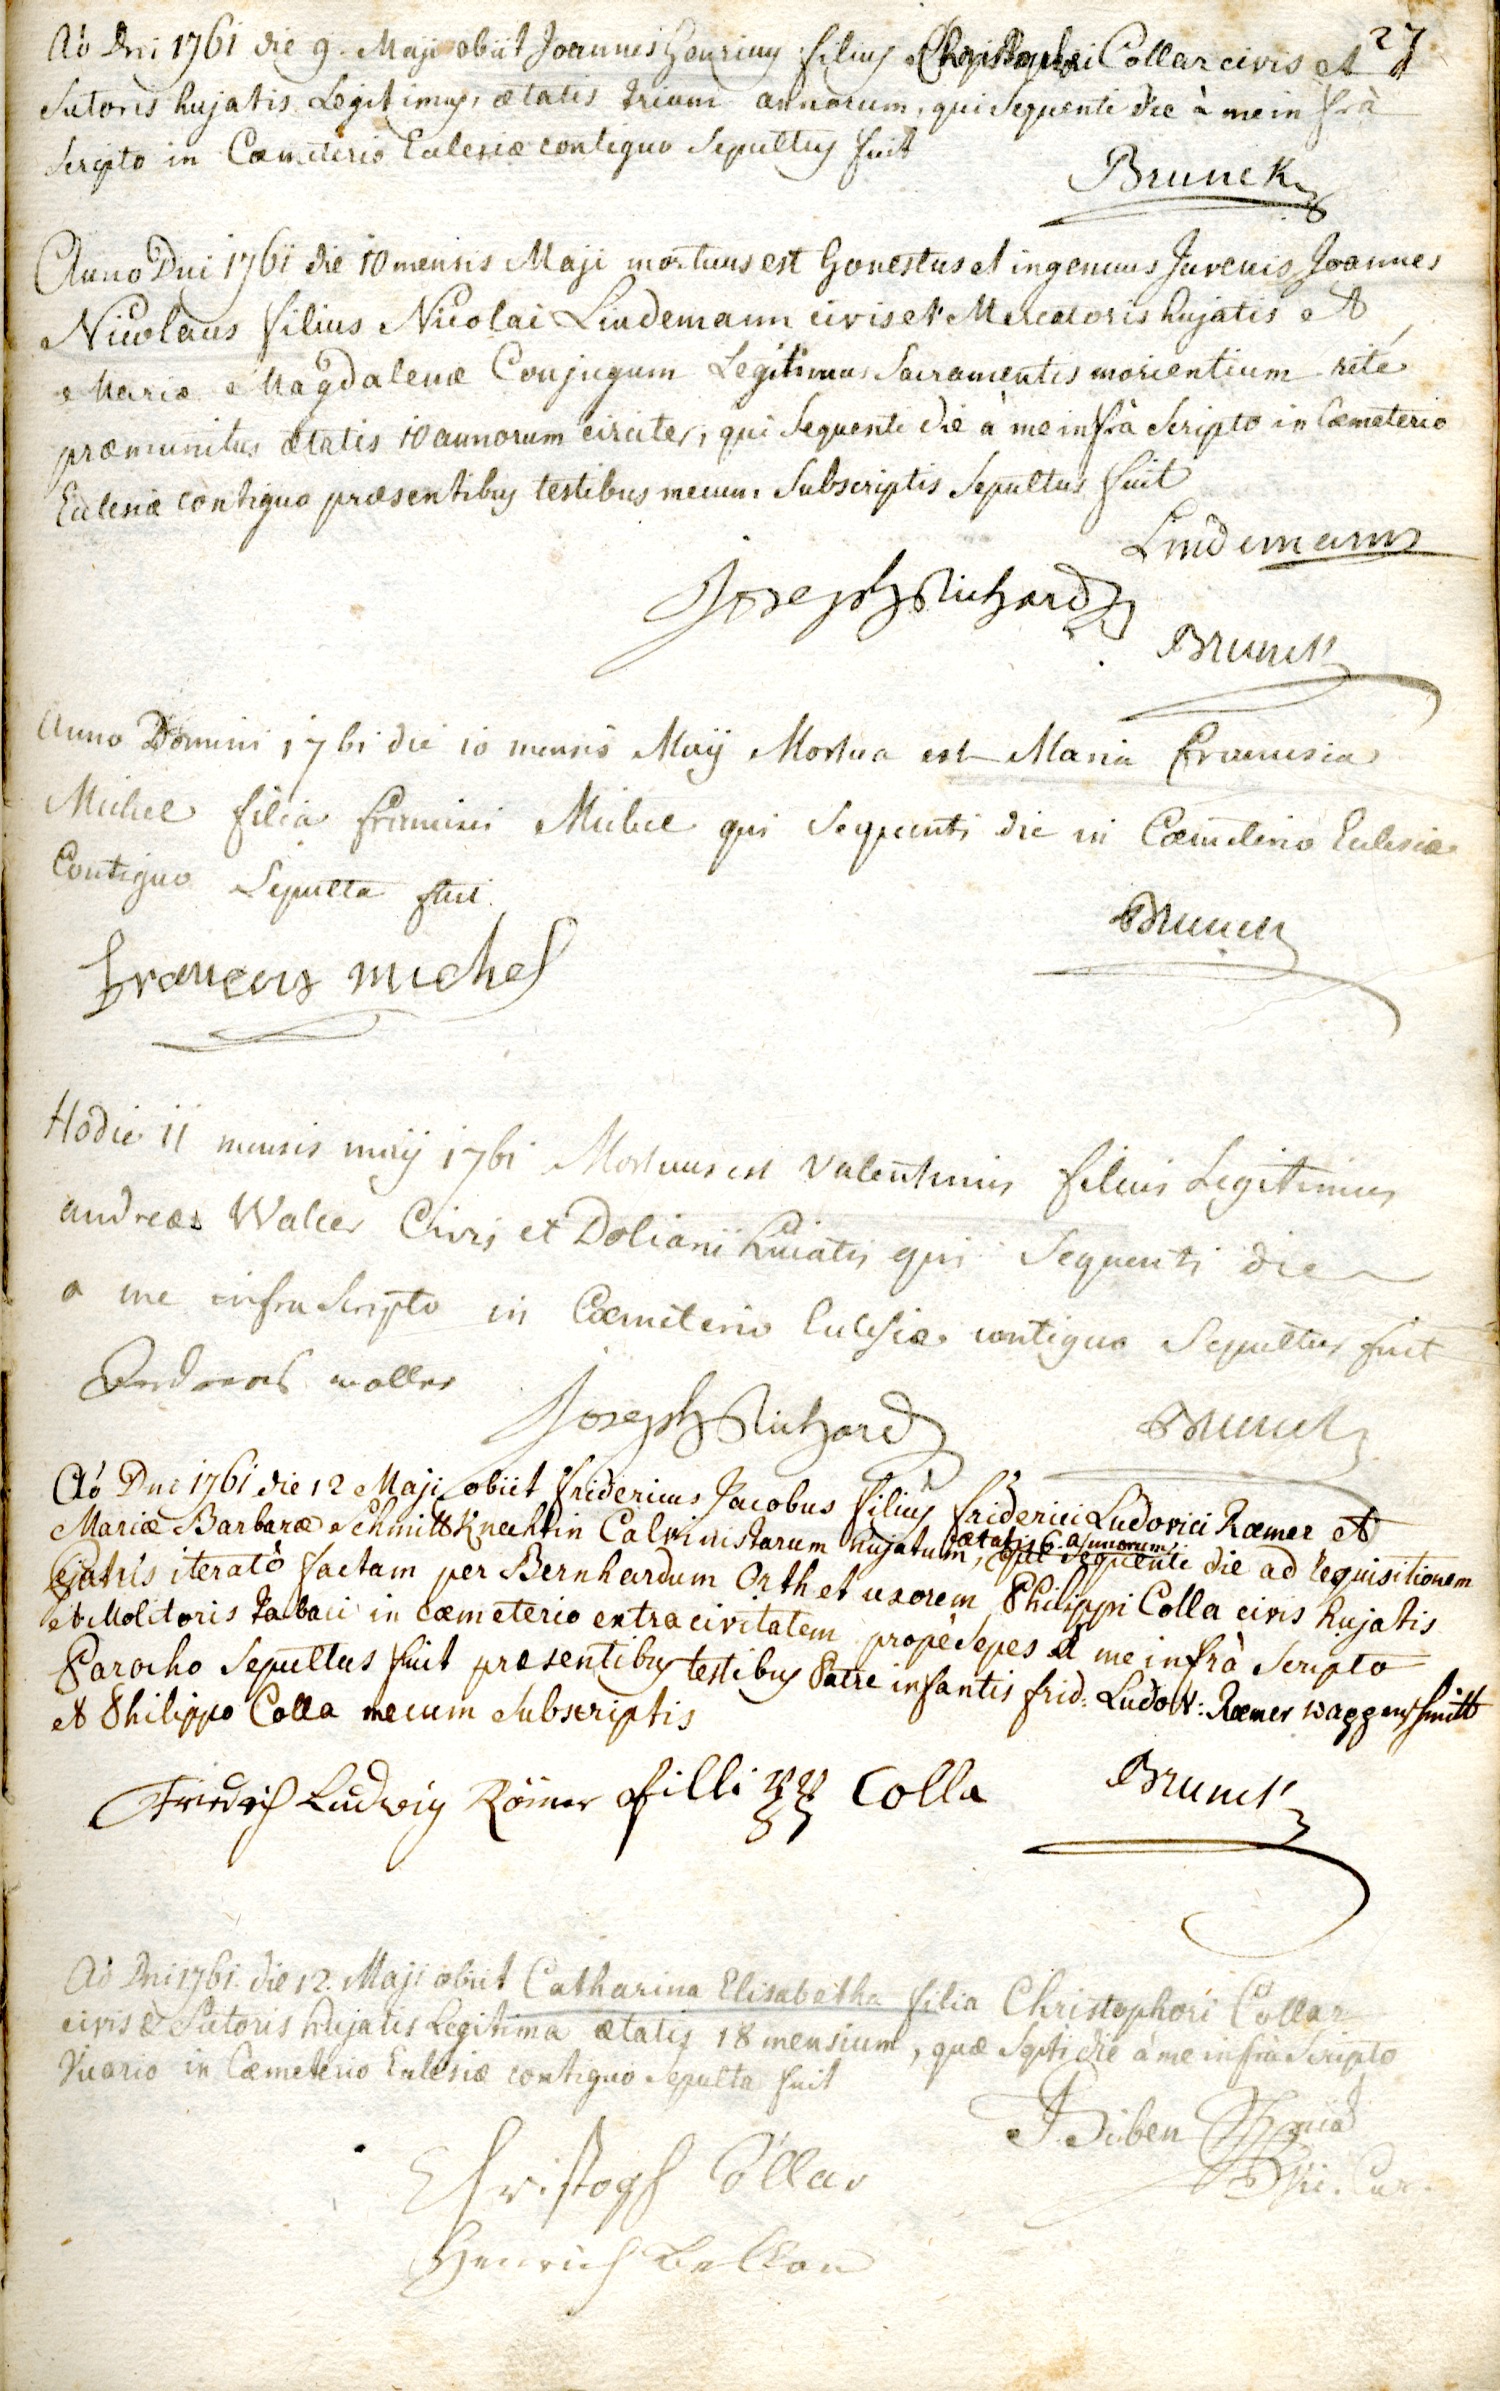 27
Aõ Dni 1761 die 9. Maji obiit Joannes Henricus filius Christophori Collar civis et
Sutoris hujatis Legitimus, ætatis trium annorum, qui sequenti die à me infrà
Scripto in Cœmeterio Eclesiæ contiguo Sepultus fuit
Brunck
Anno Dni 1761 die 10 mensis Maji mortuus est Honestus et ingenuus Juvenis Joannes
Nicolaus filius Nicolai Lindemann civis et Mercatoris hujatis et
Mariæ Magdalenæ Conjugum Legitimus Sacramentis morientium rite
præmunitus ætatis 10 annorum circiter, qui Sequenti die à me infrà Scripto in Cœmeterio
Eclesiæ contiguo præsentibus testibus mecum Subscriptis Sepultus fuit
Lindemann
Joseph Richard
Brunck
Anno Domini 1761 die 10 mensis Maij Mortua est Maria Francisca
Michel filia francisci Michel qui Sequenti die in Cœmeterio Eclesiæ
Contiguo Sepulta fuit
Brunck
françois michel
Hodie 11 mensis maij 1761 Mortuus est Valentinus filius Legitimus
andreæ Walter Civis et Doliarii huiatis qui Sequenti die
a me infra Scripto in Cœmiterio Eclesiæ contiguo Sepultus fuit
Andreas walter
Joseph Richard
Brunck
Aõ Dni 1761 die 12 Maji obiit Fridericus Jacobus filius friderici Ludovici Rœmer et
Mariæ Barbaræ Schmittknechtin Calvinistarum hujatum, ætatis 6 annorum, qui Sequenti die ad requisitionem
ejatris iteratò factam per Bernhardum Orth et uxorem Philippi Colla civis hujatis
et Molitoris Tabaci in cœmeterio extra civitatem propè Sepes à me infrà Scripto
Parocho Sepultus fuit præsentibus testibus Patre infantis frid: Ludov: Rœmer waggenschmitt
et Philippo Colla mecum Subscriptis
Friedrich Ludwig Römer filli Colla
Brunck
Aõ Dni 1761. die 12. Maji obiit Catharina Elisabetha filia Christophori Collar
civis & Sutoris hujatis Legitima ætatis 18 mensium, quæ Sqti die à me infrà Scripto
Vicario in Cœmeterio Eclesiæ contiguo Sepulta fuit
Christoph Collar
Henrich